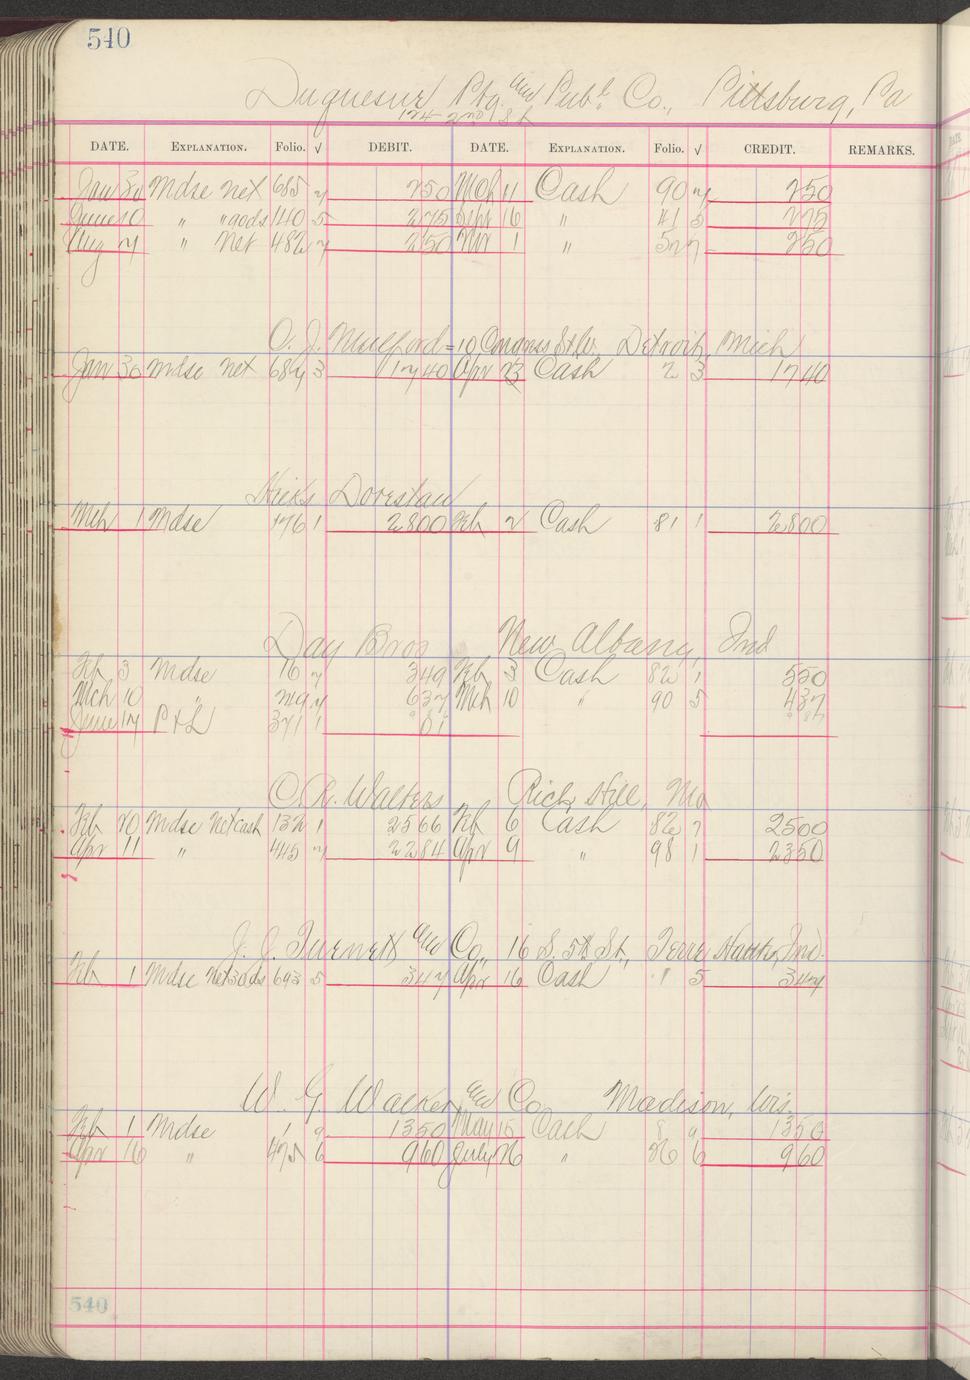 540
Duquesne Ptg. and Publ. Co., Pittsburg, Pa
174 2nd St
DATE. EXPLANATION. Folio. √ DEBIT. DATE. EXPLANATION. Folio. √ CREDIT. REMARKS.
Jan 30 Mdse net 685 7 250 Mch 11 Cash 90 7 250
June 10 " " 90ds 140 5 275 Sept 16 " 41 5 275
Aug 7 " Net 482 7 250 Nov 1 " 527 250
C. J. Mulford = 10 Congress St W. Detroit, Mich
Jan 30 Mdse net 684 3 1740 Apr 23 Cash 2 3 1740
Dorestan
Mch 1 Mdse 176 1 2800 Feb 2 Cash 81 1 2800
Day Bros New Albany, Ind
Feb 3 Mdse 16 7 349 Feb 3 Cash 82 1 550
Mch 10 " 637 Mch 10 " 90 5 437
June 17 P & L 371 1 01
C. R. Walters Rich Hill, Mo
Feb 20 Mdse Net cash 132 1 2566 Feb 6 Cash 82 7 2500
Apr 11 " 445 7 2284 Apr 9 " 98 1 2350
J. J. and Co., 16 S. 5th St., Terre Haute, Ind.
Feb 1 Mdse Net 30ds 693 5 347 Apr 16 Cash 1 5 347
W. G. Walker and Co Madison, Wis.
Feb 1 Mdse 1 9 1350 May 15 Cash 8 9 1350
Apr 16 " 475 6 960 July 26 " 26 6 960
540